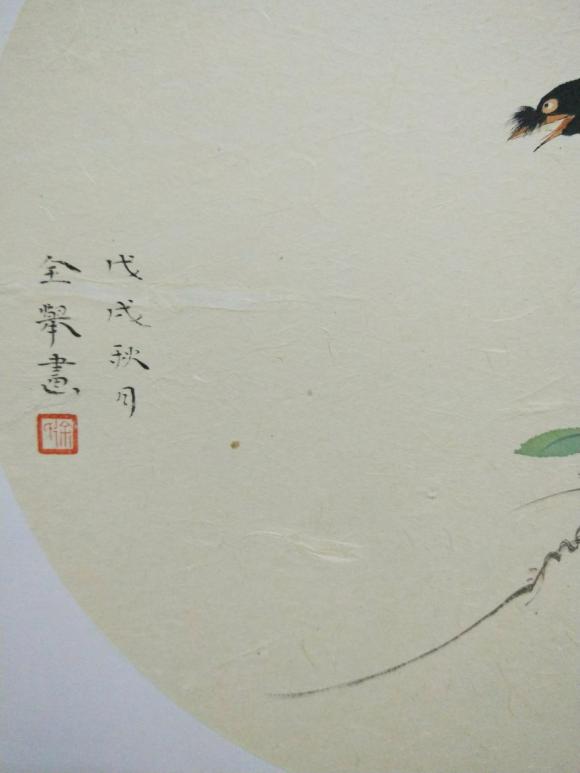 戊戌秋月
全舉畫
徐